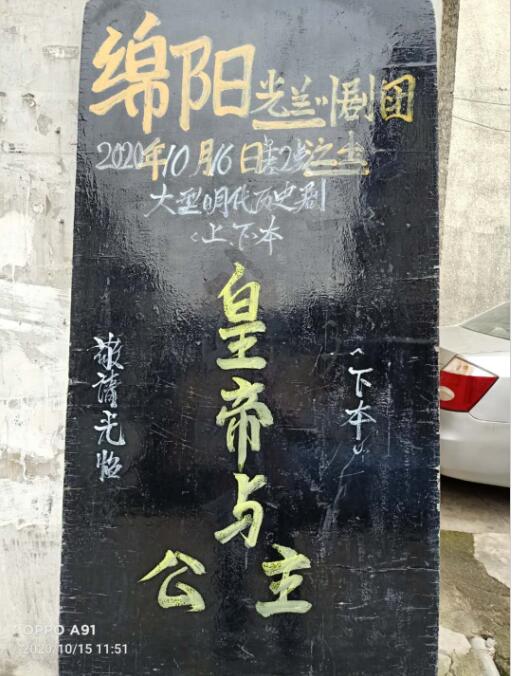 绵阳光兰川剧团
2020年10月16日
大型明代历史剧
<上、下>本
皇帝与
公主
<下本>
敬请光临
OPPO A91
2020/10/15 11:51